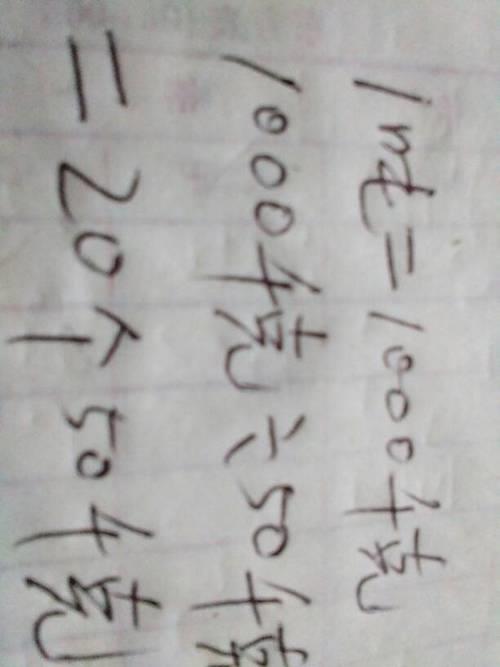 1吨=1000千克
1000千克÷50千克
=20个50千克